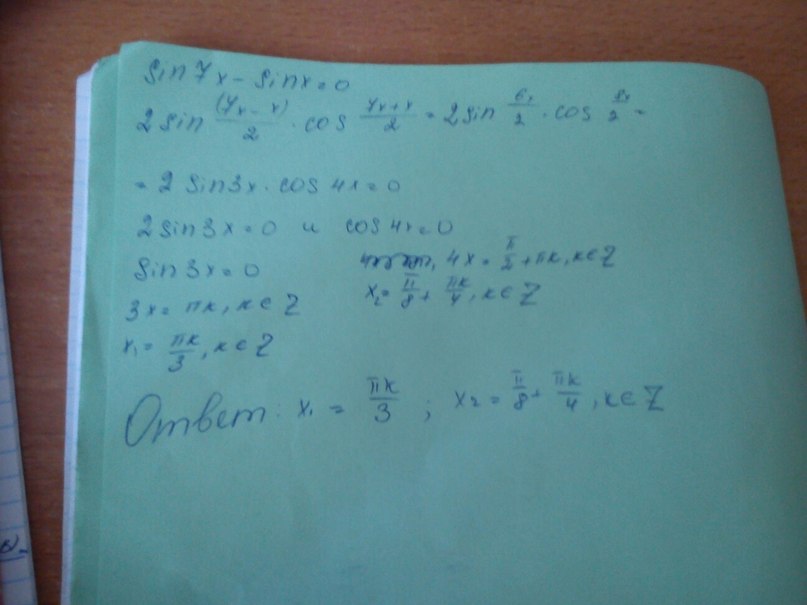 sin 7x - sin x = 0
2 sin (7x - x)/2 · cos 7x+x/2 = 2 sin 6x/2 · cos 8x/2 =
= 2 sin 3x · cos 4x = 0
2 sin 3x = 0 и cos 4x = 0
sin 3x = 0
4x = π/2 + πк, к ∈ Z
3x = πк, к ∈ Z
x₂ = π/8 + πк/4, к ∈ Z
x₁ = πк/3, к ∈ Z
Ответ: x₁ = πк/3 ; x₂ = π/8 + πк/4, к ∈ Z